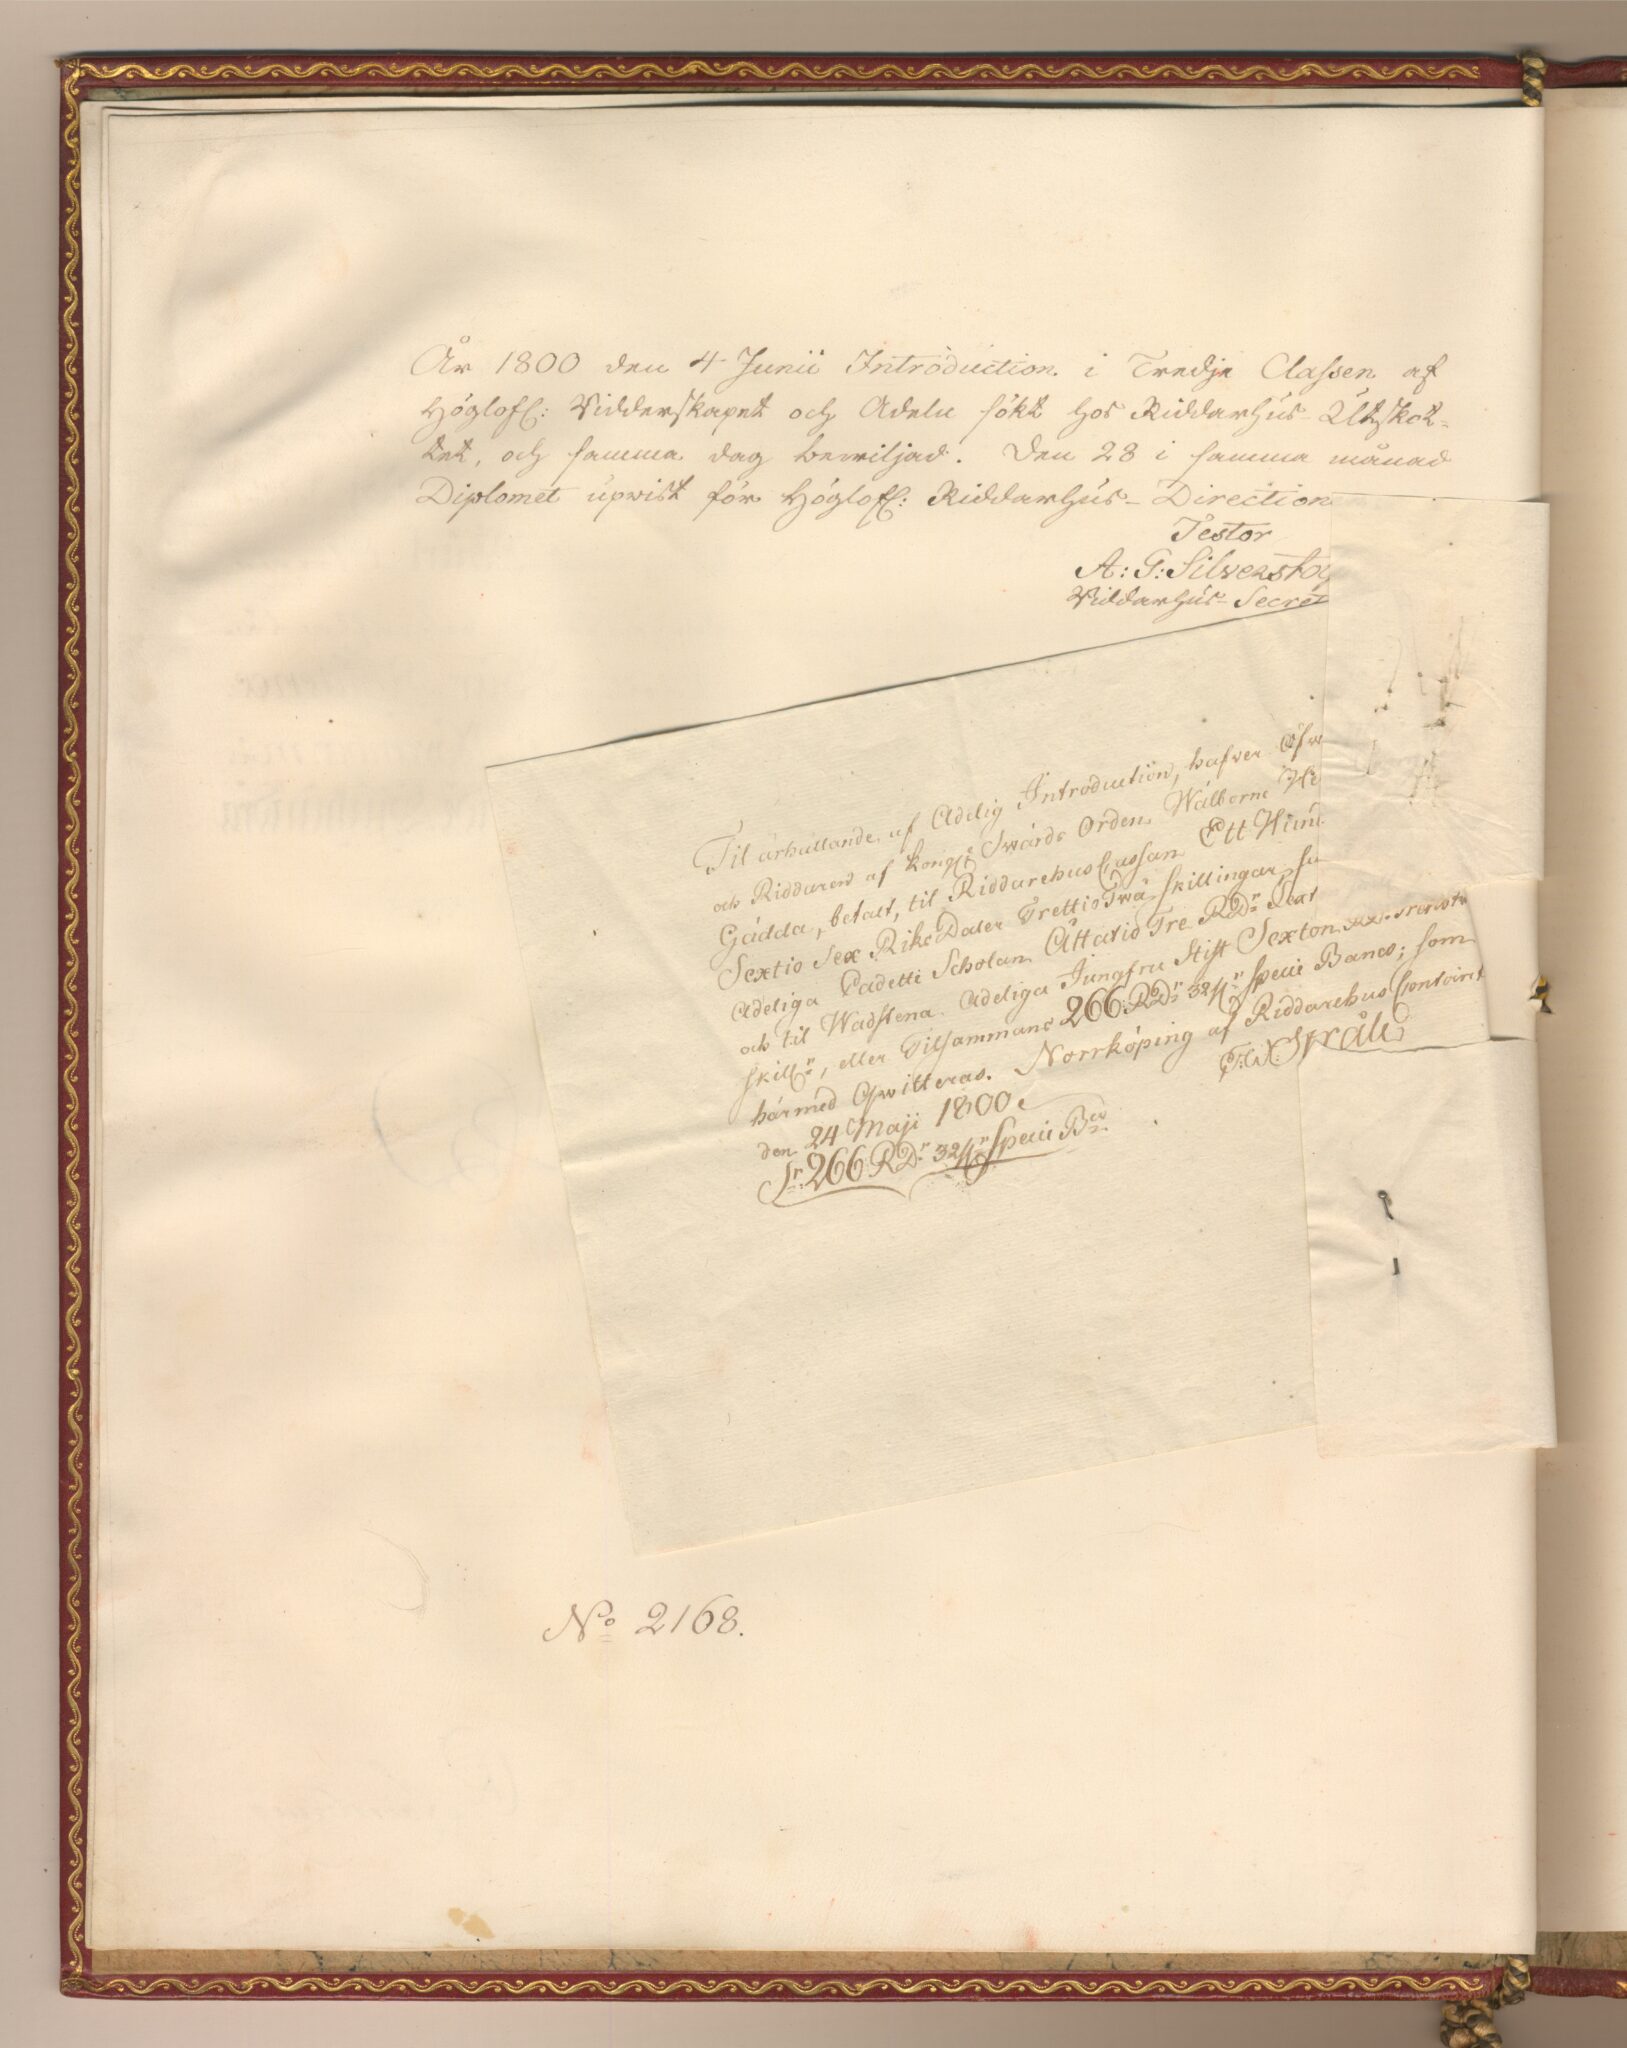 År 1800 den 4 Junii Introduction i Tredje Classen af
Höglofl: Ridderskapet och Adeln sökt hos Riddarhus-Utskot-
tet, och samma dag bewiljad. Den 28 i samma månad
Diplomet upwist för Höglofl: Riddarhus-Direction
Testor
A: G: Silversto
Riddarhus-Secret
Til ärhållande af Adelig Introduction, hafver Öfw
och Riddaren af Kongl Swärds Orden Wälborne He
Gädda, betalt, til RiddarehusCassan Ett Hun
Sextio Sex RiksDaler TrettioTwå Skillingar, til
Adeliga Cadette Scholan Åttatio Tre RDr
och til Wadstena Adeliga Jungfru Stift Sexton RDr Trettiotv
Skillr, eller Tilsammans 266 RDr 32 s Specie Banco; som
härmed Qwitteras. Norrköping af Riddarehus Contoiret
den 24 Maji 1800.
Sr 266 RDr 32 s Specie Bco
No 2168.